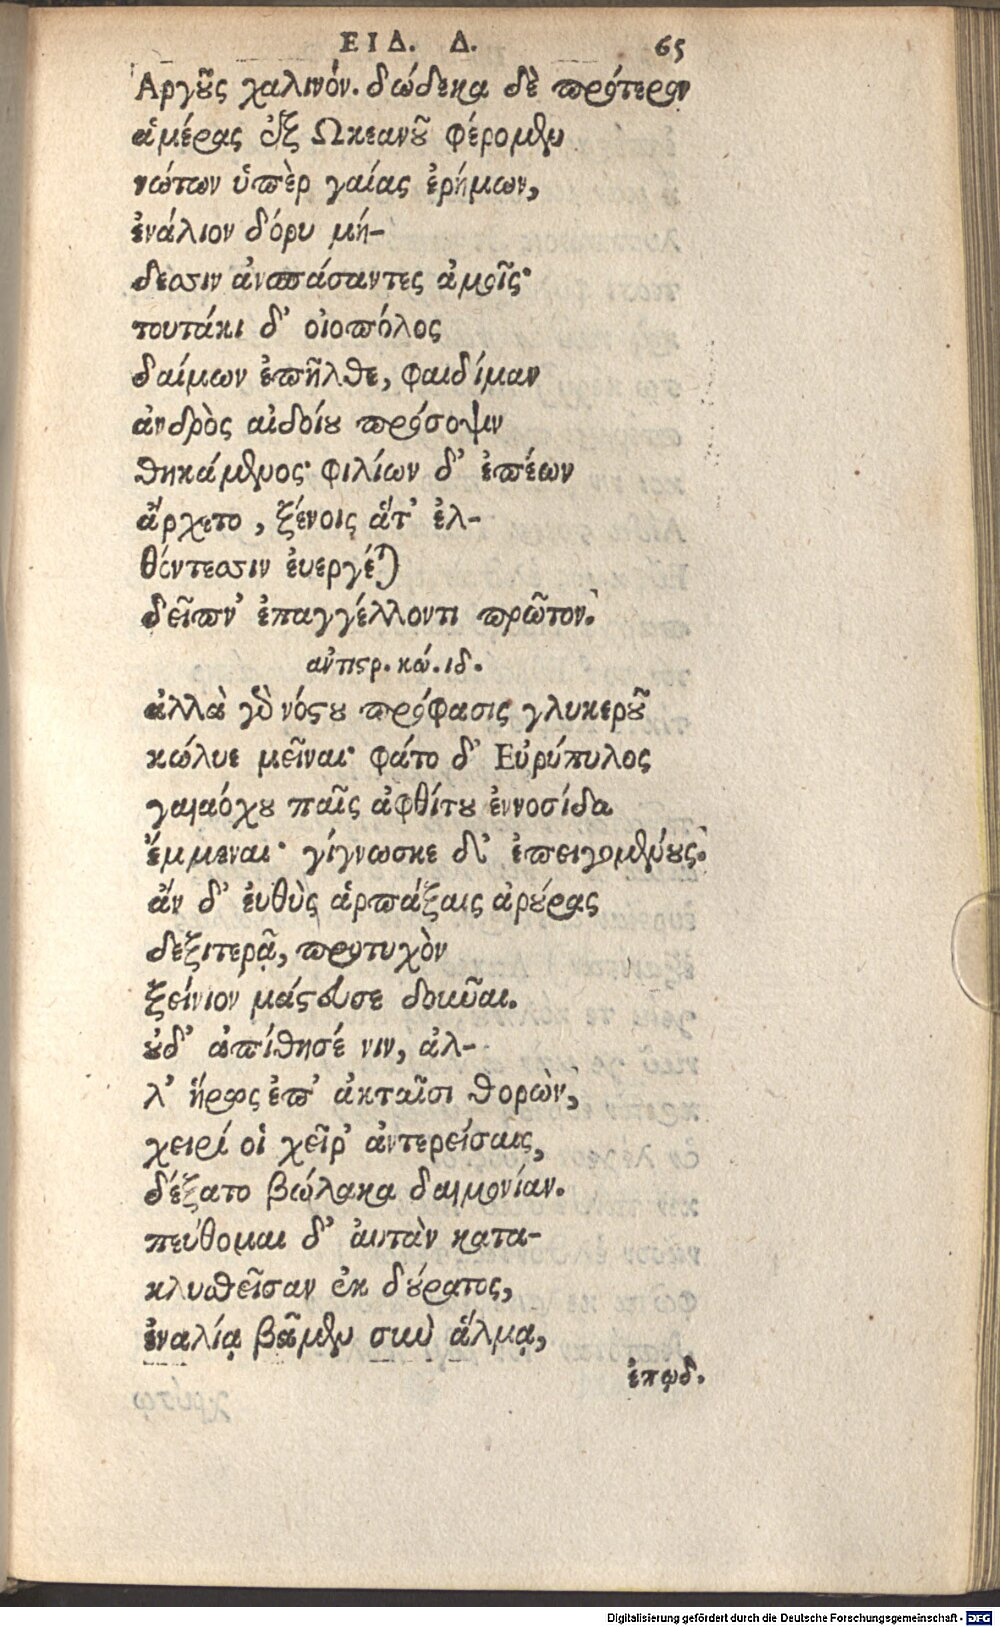 ΕΙΔ. Δ. 65
Ἀργοῦς χαλινόν. δώδεκα δὲ πρότερον
ἁμέρας ἐξ Ὠκεανοῦ φέρομεν
νώτων ὑπὲρ γαίας ἐρήμων,
ἐνάλιον δόρυ μή-
δεσιν ἀνσπάσαντες ἀμοῖς·
τουτάκι δ' οἰοπόλος
δαίμων ἐπῆλθε, φαιδίμαν
ἀνδρὸς αἰδοίου πρόσοψιν
θηκάμενος· φιλίων δ' ἐπέων
ἄρχετο, ξένοις ἅτ' ἐλ-
θόντεσσιν ἐυεργέται
δεῖπν' ἐπαγγέλλοντι πρῶτον.
ἀντιστρ. κώ. ιδ.
ἀλλὰ γὰρ νόστου πρόφασις γλυκεροῦ
κώλυε μεῖναι· φάτο δ' Εὐρύπυλος
γαιαόχου παῖς ἀφθίτου ἐννοσίδα
ἔμμεναι· γίγνωσκε δ' ἐπειγομένους.
ἂν δ' ἐυθὺς ἁρπάξαις ἀρούρας
δεξιτερᾷ, προτυχὸν
ξείνιον μάστευσε δοῦναι.
οὐδ' ἀπίθησέ νιν, ἀλ-
λ' ἥρως ἐπ' ἀκταῖσι θορὼν,
χειρί οἱ χεῖρ' ἀντερείσαις,
δέξατο βώλακα δαιμονίαν.
πεύθομαι δ' αὐτὰν κατα-
κλυσθεῖσαν ἐκ δούρατος,
ἐναλίᾳ βᾶμεν σὺν ἅλμᾳ,
ἐπῳδ.
Digitalisierung gefördert durch die Deutsche Forschungsgemeinschaft - DFG